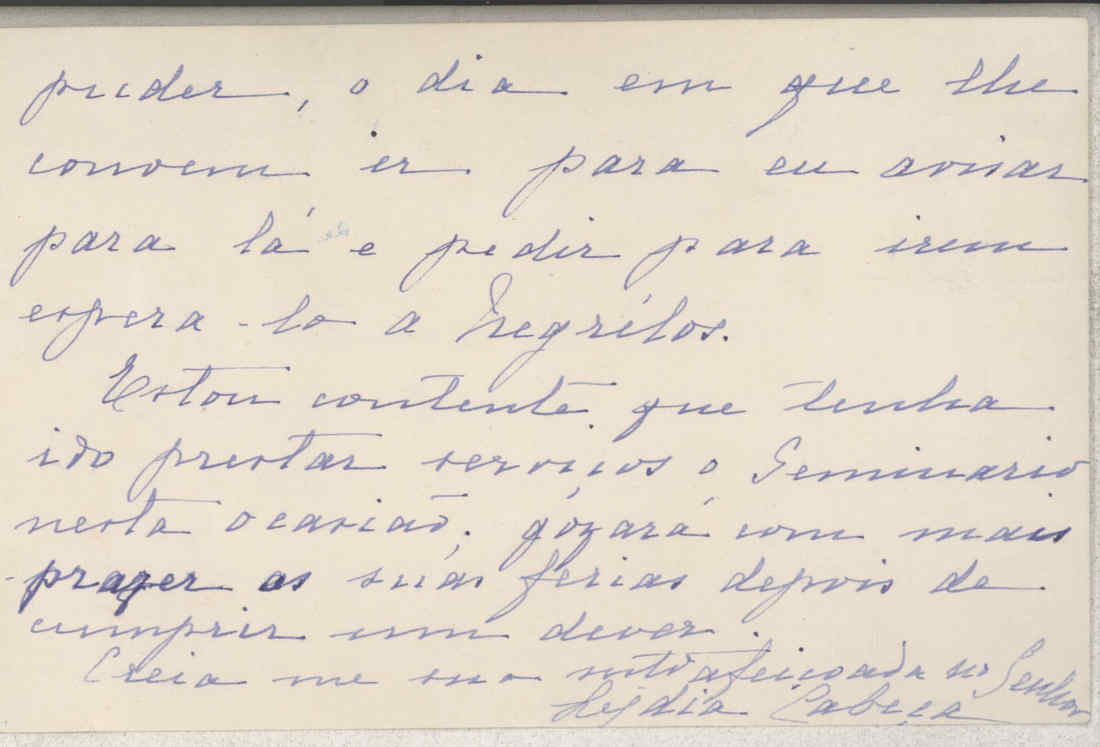 puder, o dia em que lhe
convem ir para eu avisar
para lá e pedir para irem
espera-lo a Negrélos.
Estou contente que tenha
ido prestar serviços o Seminario
nesta ocasião; gózará com mais
prazer as suas ferias depois de
cumprir um dever.
Creia me sua muito afeiçoada no Senhor
Lydia Cabeça